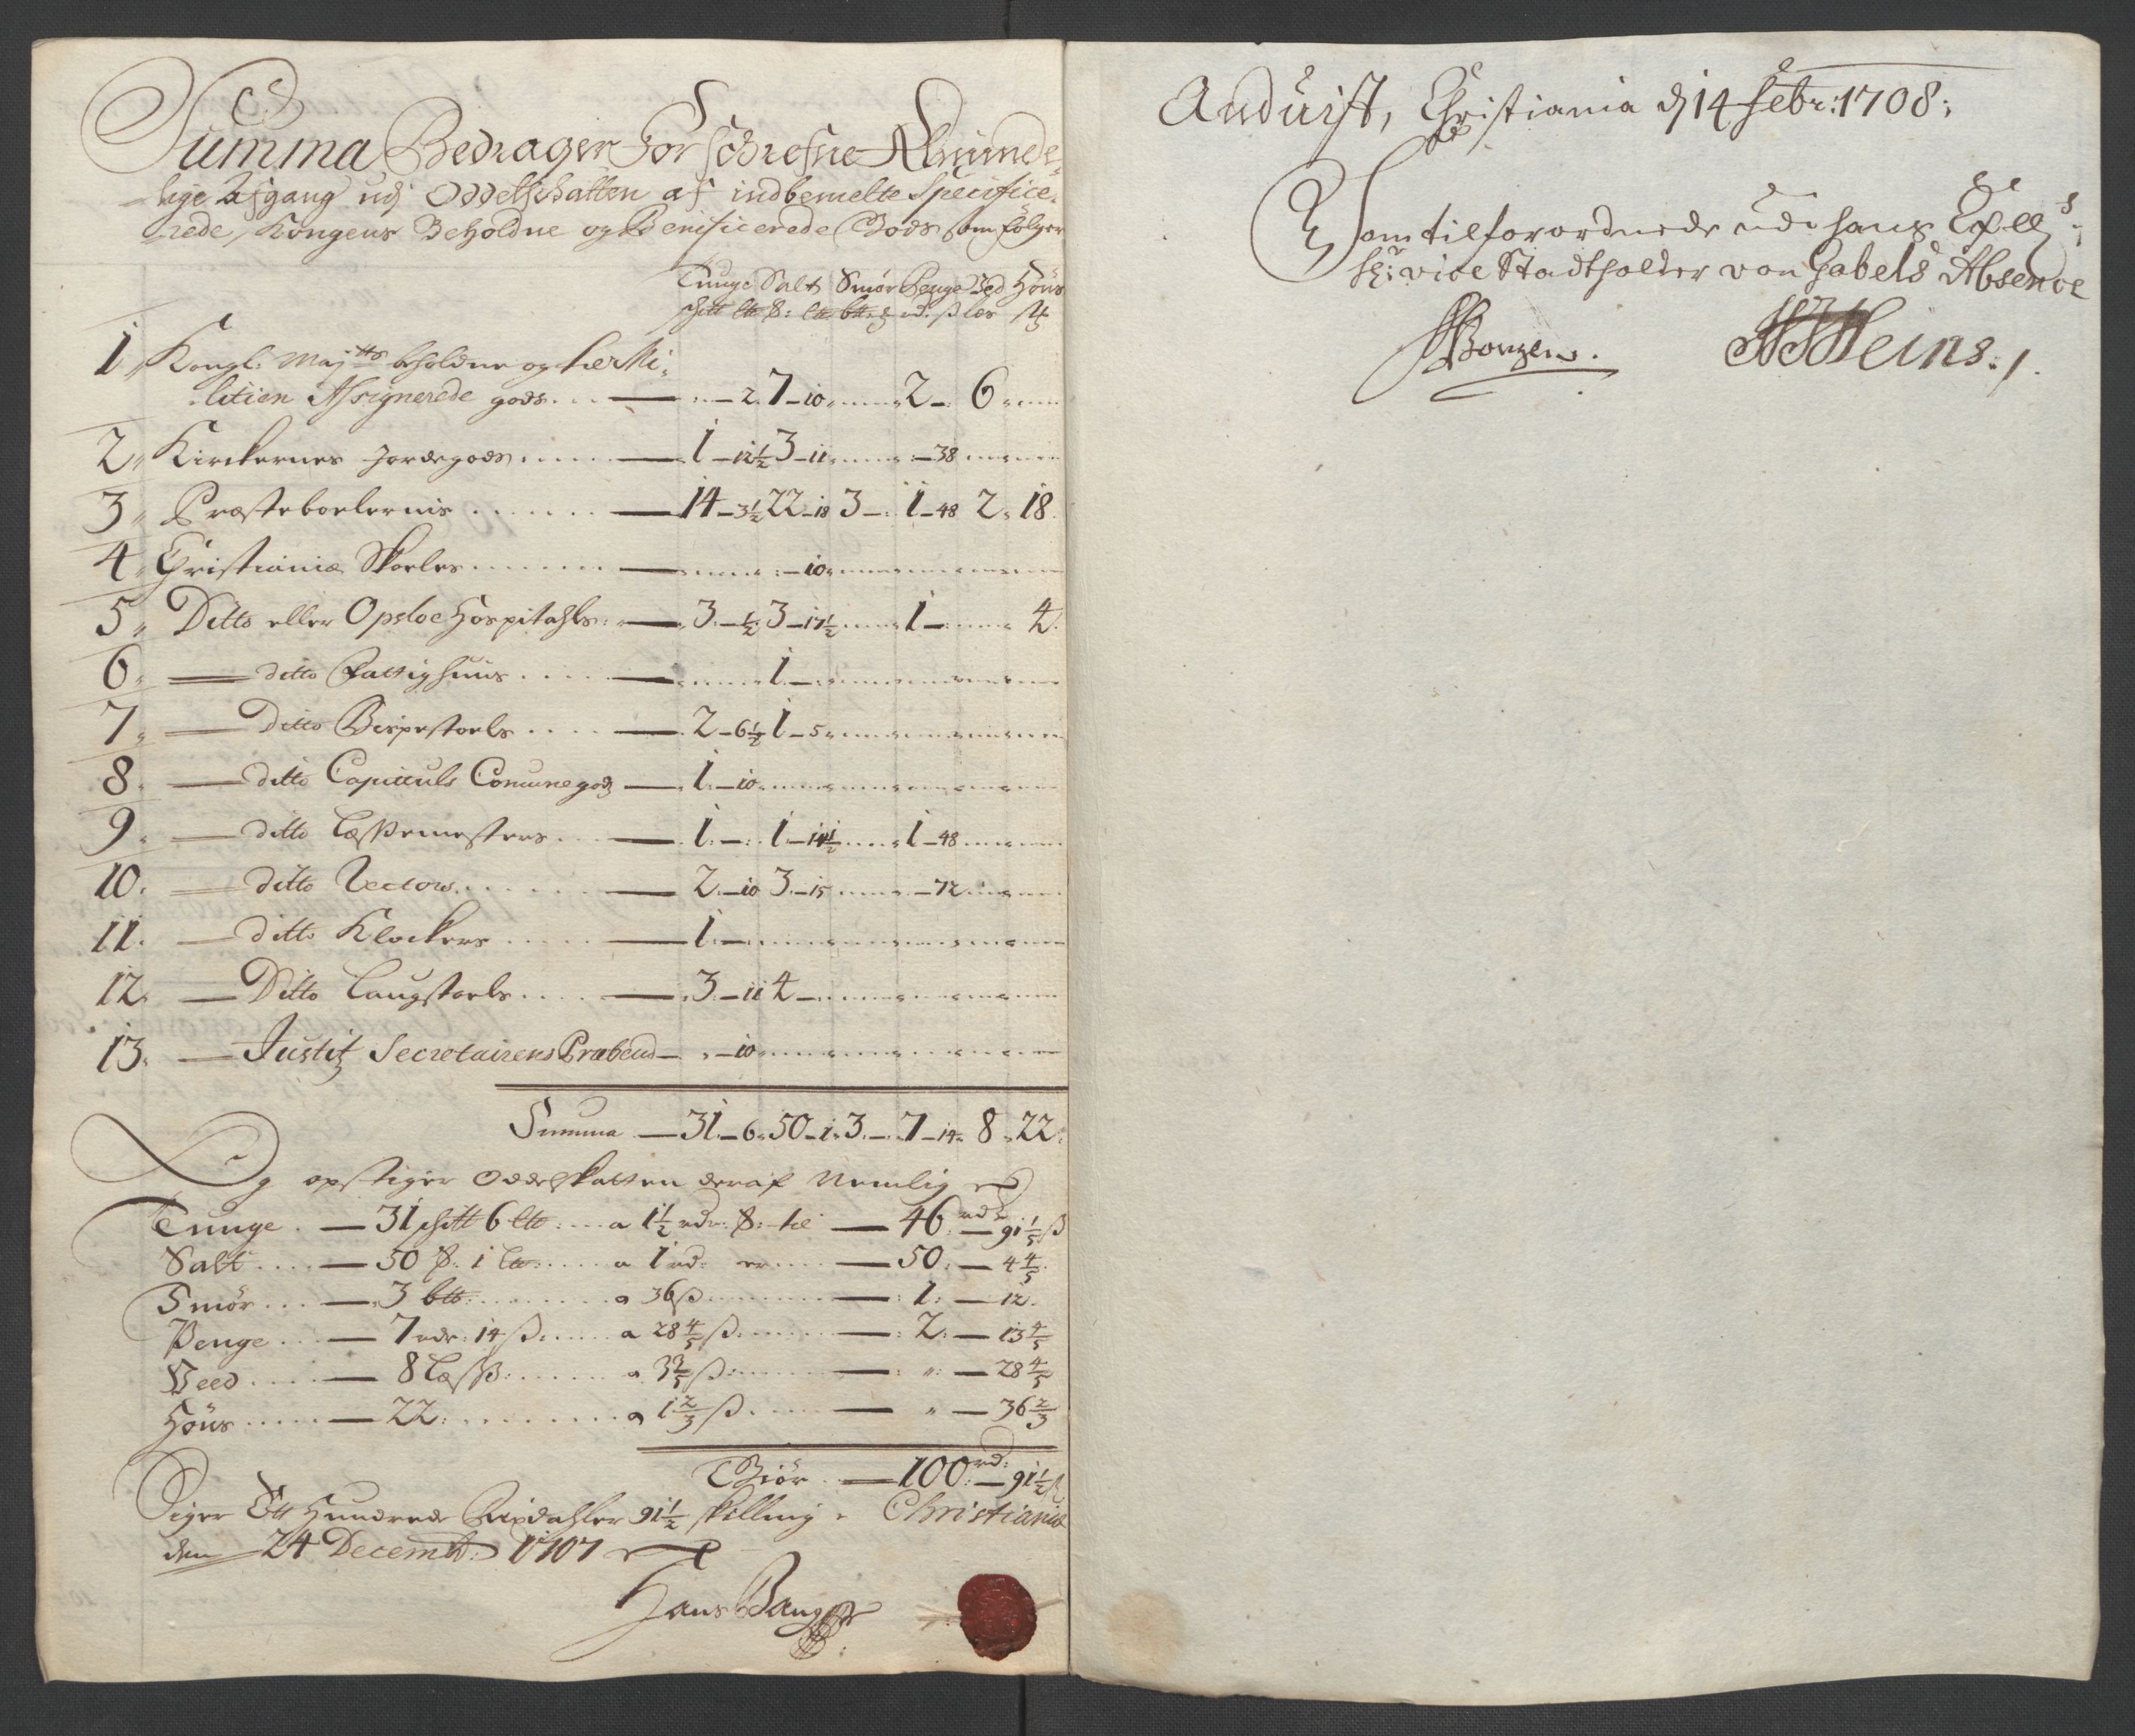 Summa Bedrager Forschrefne Alminde-
lige Afgang udj Oddelschatten af indbemelte Specifice-
rede, Kongens Beholdne og Benificerede Gods som følger
Tunge Salt Smør Penge Ved Høns
schtt ltt t: ltt btt: rd. ß les st
1 Kongl: Maytts beholdne og til Mi-
litien Assignerede gods — 2. 7 – 10 2 – 6
2 Kirckernes Jordegods — 1 – 12½ 3 – 11 – 38
3 Præsteboelernis — 14 – 3½ 22 – 18 3 – 1 – 48 2 18
4 Christianiæ Skoeles — – 10
5 Ditto eller Opsloe Hospitahls — 3 – ½ 3 – 17½ 1 – 4
6 — ditto Fattighuus — 1 –
7 — Ditto Bispestoels — 2 – 6½ 1 – 5
8 — ditto Capituls Comunegods — 1 – 10
9 — ditto Læssemesters — 1 – 1 – 14½ 1 – 48
10 — ditto Rectors — 2 – 10 3 – 15 – 72
11 — Ditto Klockers — 1 –
12 — Ditto Laugstoels — 3 – 11 4 –
13 — Justitz Secretairens Præbend — – 10
Summa — 31 – 6 50 – 1 3 – 7 – 14 8 22
Og opstiger Oddelskatten deraf Nemlig
Tunge — 31 schtt 6 ltt: a 1½ rdr: t: til — 46 rdr – 91⅕ ß
Salt — 50 t: 1 ltt: a 1 rd: er — 50: – 4⅘
Smør — 3 btt: a 36 ß — 1: – 12
Penge — 7 rdr: 14 ß: a 28⅘ ß — 2: – 13⅘
Veed — 8 Læss: a 3⅗ ß: — " – 28⅘
Høns — 22: a 1⅔ ß — " – 36⅔
Giør — 100 rd: – 91½ ß
Siger Et Hundrede Rixdahler 91½ skilling. Christiania
den 24 Decembr: 1707
Hans Bang
Anduist, Christiania d 14 Febr: 1708:
Som tilforordnede udi hans Excell:s
Hr: vice Stadtholder von Gabels Absence